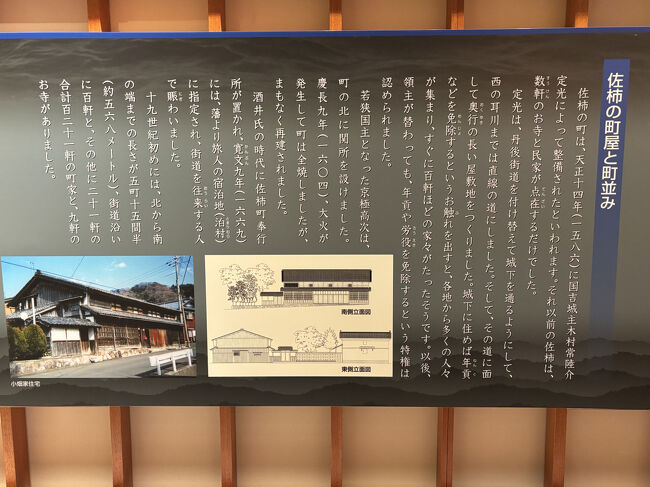 佐柿の町屋と町並み
佐柿の町は、天正十四年(一五八六)に国吉城主木村常陸介
定光によって整備されたといわれます。それ以前の佐柿は、
数軒のお寺と民家が点在するだけでした。
定光は、丹後街道を付け替えて城下を通るようにして、
西の耳川までは直線の道にしました。そして、その道に面
して奥行の長い屋敷地をつくりました。城下に住めば年貢
などを免除するというお触れを出すと、各地から多くの人々
が集まり、すぐに百軒ほどの家々がたったそうです。以後、
領主が替わっても、年貢や労役を免除するという特権は
認められました。
若狭国主となった京極高次は、
町の北に関所を設けました。
慶長九年(一六〇四)、大火が
発生して町は全焼しましたが、
まもなく再建されました。
酒井氏の時代に佐柿町奉行
所が置かれ、寛文九年(一六六九)
には、藩より旅人の宿泊地(泊村)
に指定され、街道を往来する人
で賑わいました。
十九世紀初めには、北から南
の端までの長さが五町十五間半
(約五六八メートル)、街道沿い
に百軒と、その他に二十一軒の
合計百二十一軒の町家と、九軒の
お寺がありました。
南側立面図
東側立面図
小畑家住宅